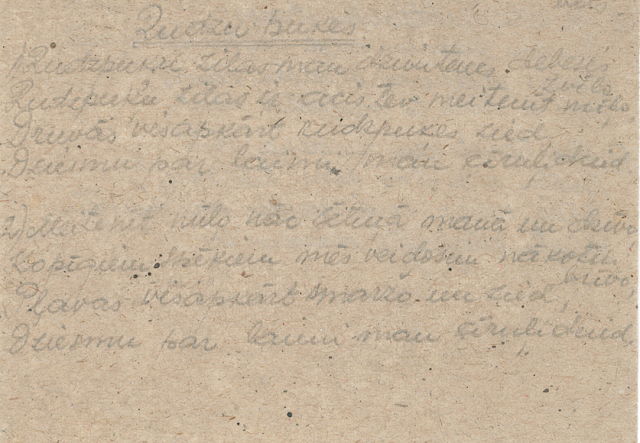 Rudzu pukes
1) Rudzpuķu zilas man dzivītenes debesis
Rudzpuķu zilas ir acis tev meitenīt mīļo
Druvās visapkārt rudzpukes zied
Dziesmu par laimi man cīrulis dzied
2) Meitenīt mīļo nāc sētiņā manā un
Kopīgiem spēkiem mēs veidosim nākotni
brīvo,
Pļavās visapkārt smaržo un zied,
Dziesmu par laimi man cīrulis dzied